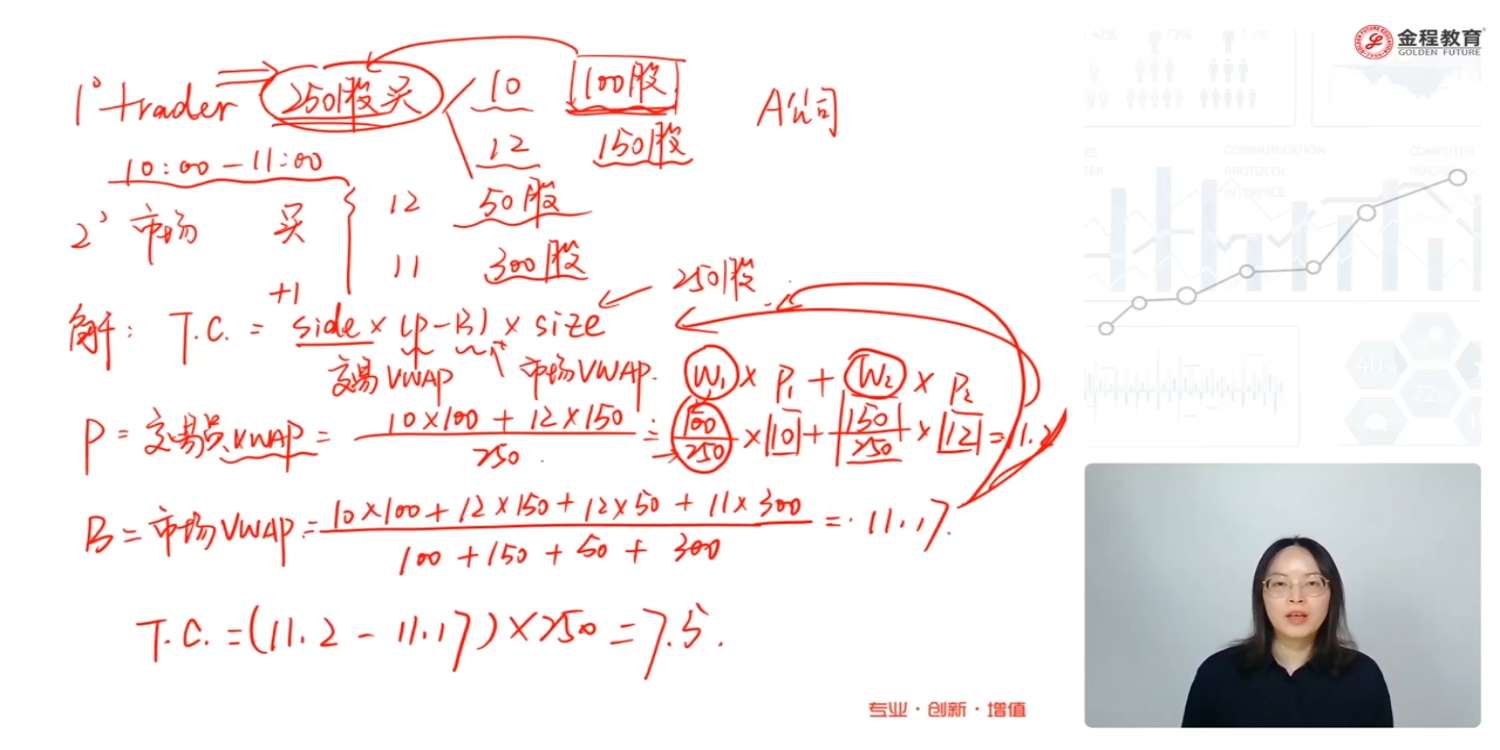 金程教育
GOLDEN FUTURE
1° trader 250股买 10 100股 A公司
12 150股
10:00-11:00
2° 市场 买 12 50股
11 300股
250股
+1
解: T.C. = side × (P-B) × size
交易VWAP 市场VWAP. W₁ × P₁ + W₂ × P₂
P = 交易员VWAP = 10×100+12×150 / 250 = 100/250 × 10 + 150/250 × 12 = 11.2
B = 市场VWAP = 10×100+12×150+12×50+11×300 / 100+150+50+300 = 11.17.
T.C. = (11.2-11.17)×250 = 7.5.
专业·创新·增值